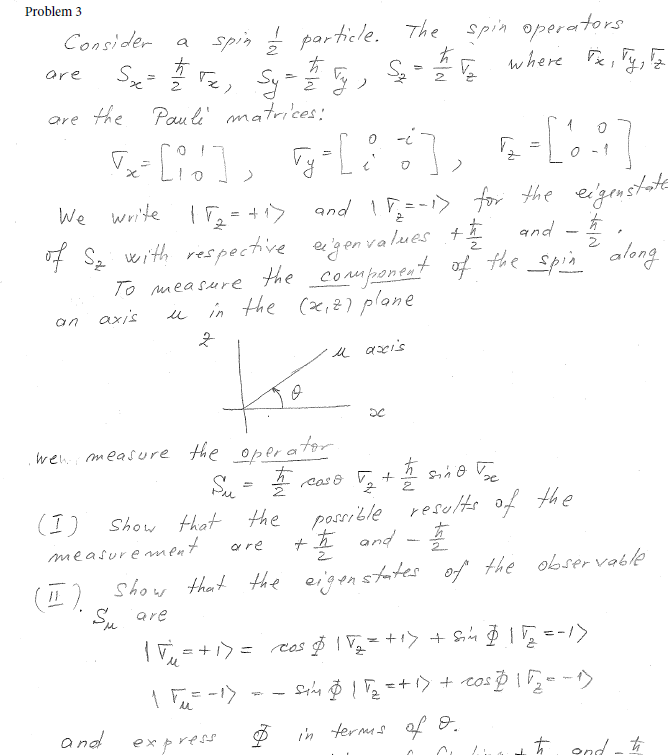 Problem 3
Consider a spin 1/2 particle. The spin operators
are Sx = ħ/2 σx, Sy = ħ/2 σy, Sz = ħ/2 σz where σx, σy, σz
are the Pauli matrices:
σx = [0 1; 1 0], σy = [0 -i; i 0], σz = [1 0; 0 -1]
We write |σz = +1> and |σz = -1> for the eigenstate
of Sz with respective eigenvalues +ħ/2 and -ħ/2.
To measure the component of the spin along
an axis u in the (x,z) plane
z
u axis
θ
x
we measure the operator
Su = ħ/2 cosθ σz + ħ/2 sinθ σx
(I) Show that the possible results of the
measurement are +ħ/2 and -ħ/2
(II) Show that the eigenstates of the observable
Su are
|σu = +1> = cos Φ |σz = +1> + sin Φ |σz = -1>
|σu = -1> = - sin Φ |σz = +1> + cos Φ |σz = -1>
and express Φ in terms of θ.